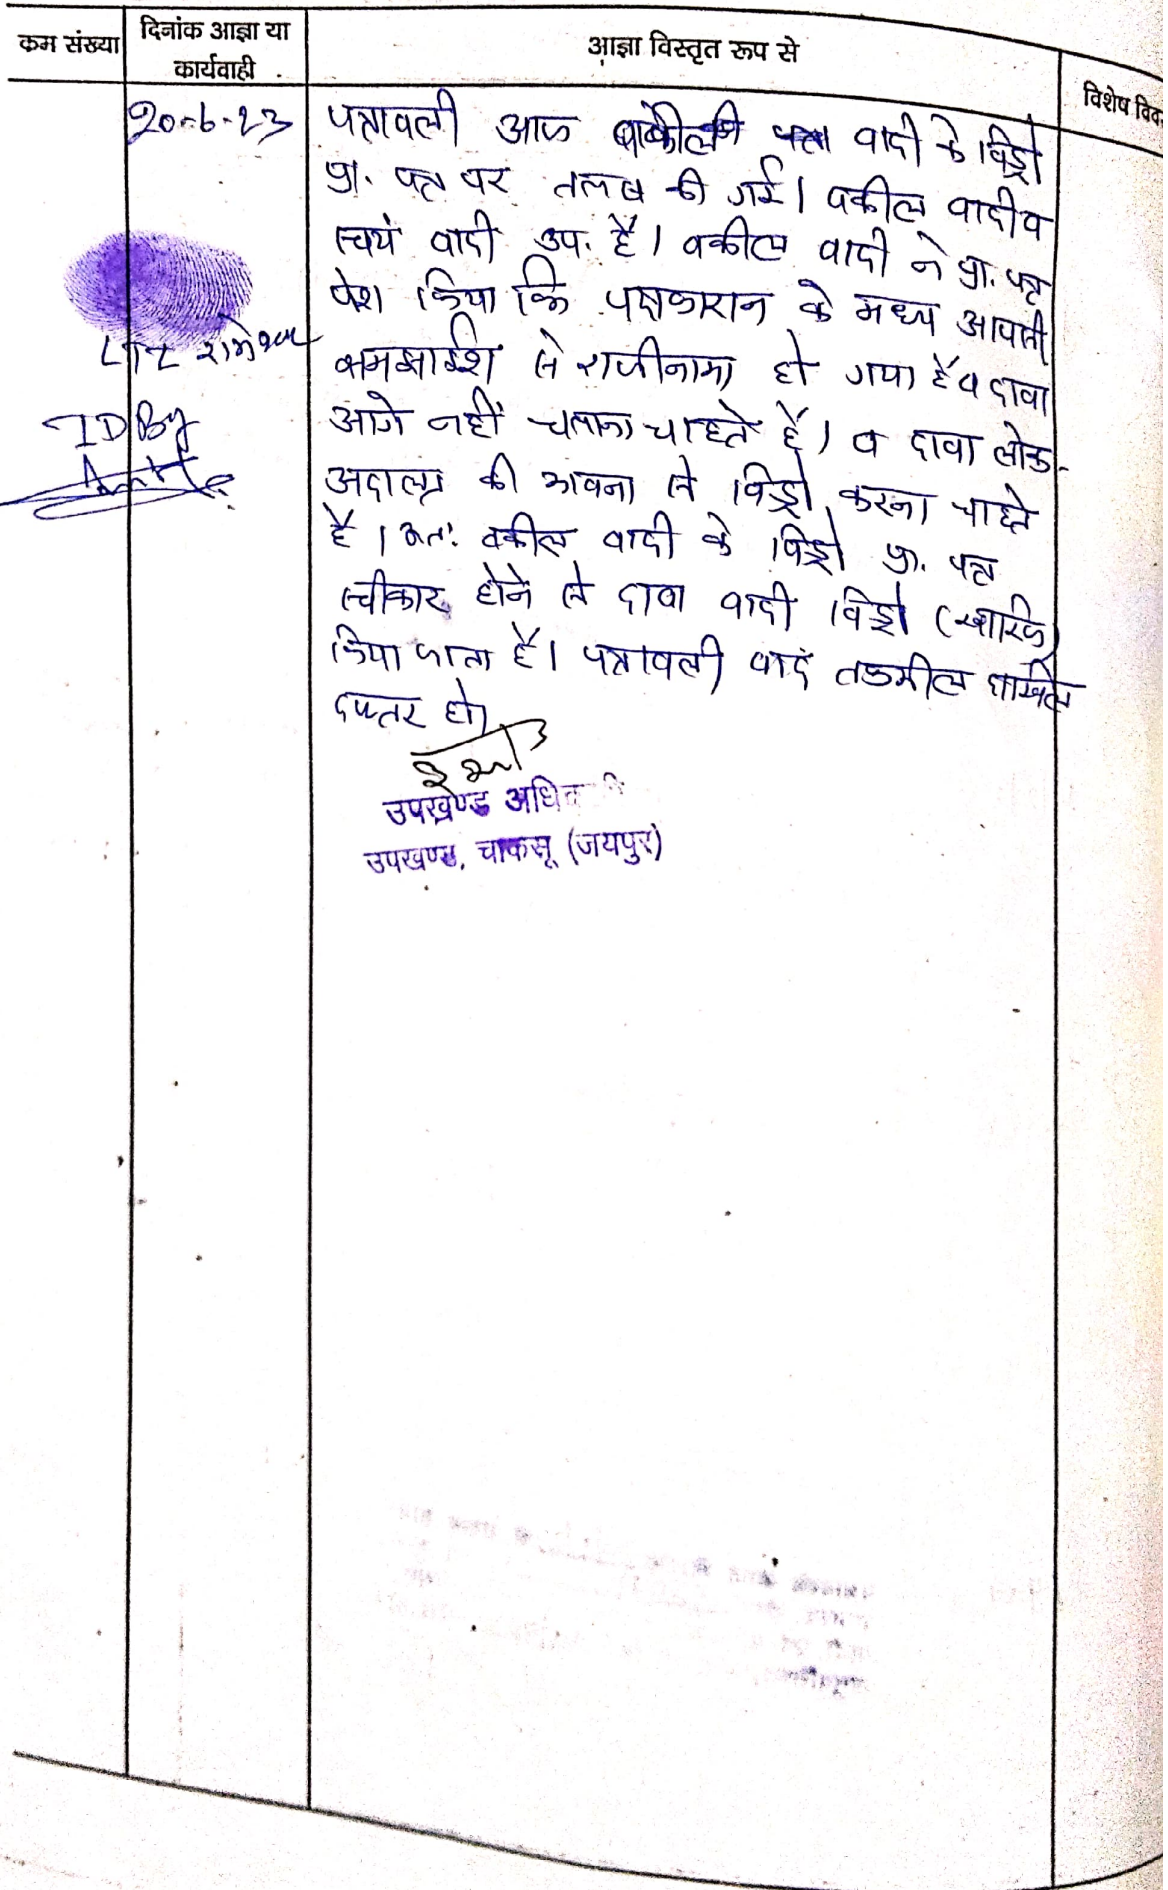 कम संख्या
दिनांक आज्ञा या
कार्यवाही
आज्ञा विस्तृत रूप से
विशेष विव
20-6-23
पत्रावली आज वादी के विड्रो
प्रा. पत्र पर तलब की गई। वकील वादी व
स्वयं वादी उप. है। वकील वादी ने प्रा. पत्र
पेश किया कि पक्षकारान के मध्य आपसी
समझाईश से राजीनामा हो गया है व दावा
आगे नहीं चलाना चाहते है। व दावा लोक
अदालत की भावना से विड्रो करना चाहते
है। अतः वकील वादी के विड्रो प्रा. पत्र
स्वीकार होने से दावा वादी विड्रो (खारिज)
किया जाता है। पत्रावली बाद तकमील दाखिल
दफ्तर हो।
LTI रामेश्वर
ID By
उपखण्ड अधिका
उपखण्ड, चाकसू (जयपुर)